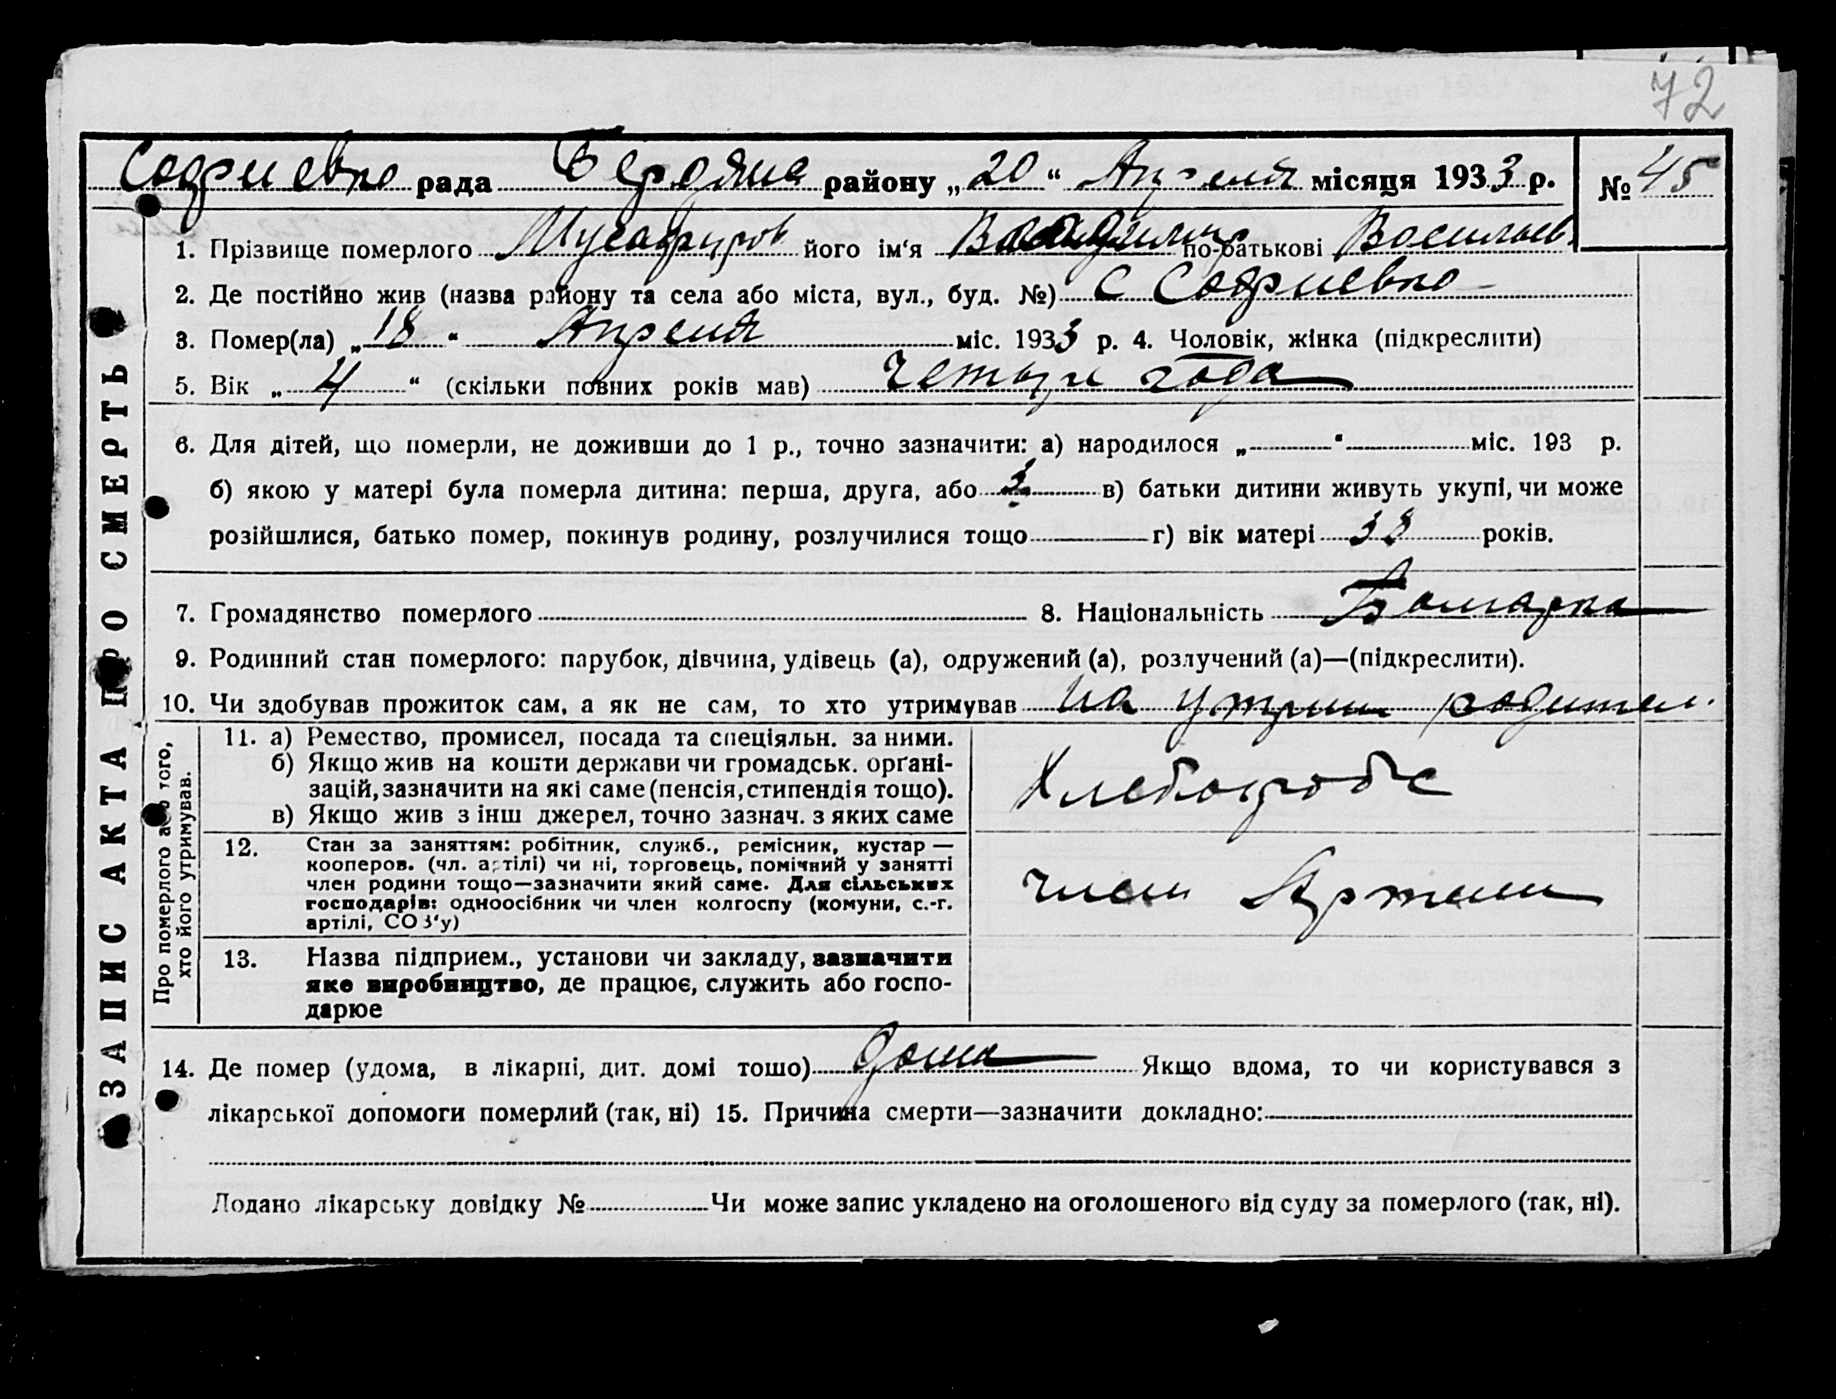 72
Софиевко рада Бердянс району „20“ Апреля місяця 1933 р. № 45
1. Прізвище померлого Мусафиров його ім'я по-батькові Васильев.
2. Де постійно жив (назва району та села або міста, вул., буд. №) С Софиевко
3. Помер(ла) „18“ Апреля міс. 1933 р. 4. Чоловік, жінка (підкреслити)
5. Вік „4“ (скільки повних років мав) Четыри года
6. Для дітей, що померли, не доживши до 1 р., точно зазначити: а) народилося „ “ міс. 193 р.
б) якою у матері була померла дитина: перша, друга, або 3 в) батьки дитини живуть укупі, чи може
розійшлися, батько помер, покинув родину, розлучилися тощо г) вік матері 38 років.
7. Громадянство померлого 8. Національність Болгарка
9. Родинний стан померлого: парубок, дівчина, удівець (а), одружений (а), розлучений (а)—(підкреслити).
10. Чи здобував прожиток сам, а як не сам, то хто утримував на утрим родител.
ЗАПИС АКТА ПРО СМЕРТЬ
Про померлого або того,
хто його утримував.
11. а) Ремество, промисел, посада та спеціяльн. за ними.
б) Якщо жив на кошти держави чи громадськ. орґані-
зацій, зазначити на які саме (пенсія, стипендія тощо).
в) Якщо жив з інш джерел, точно зазнач. з яких саме
Хлебороб
12. Стан за заняттям: робітник, служб., ремісник, кустар —
кооперов. (чл. артілі) чи ні, торговець, помічний у занятті
член родини тощо—зазначити який саме. Для сільських
господарів: одноосібник чи член колгоспу (комуни, с.-г.
артілі, СОЗ'у)
член Артели
13. Назва підприєм., установи чи закладу, зазначити
яке виробництво, де працює, служить або госпо-
дарює
14. Де помер (удома, в лікарні, дит. домі тощо) дома Якщо вдома, то чи користувався з
лікарської допомоги померлий (так, ні) 15. Причина смерти—зазначити докладно:
Додано лікарську довідку № Чи може запис укладено на оголошеного від суду за померлого (так, ні).